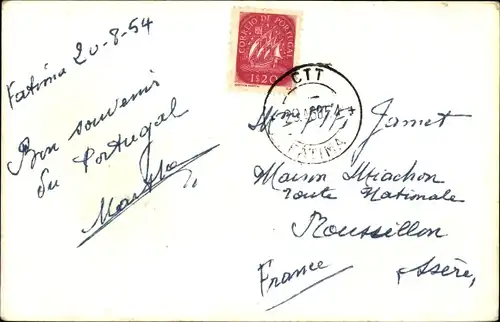 Fatima 20-8-54
Bon souvenir
du Portugal
CORREIO DE PORTUGAL
1$20
CTT
FATIMA
Jamet
Maison Miachon
route Nationale
Roussillon
Isère,
France